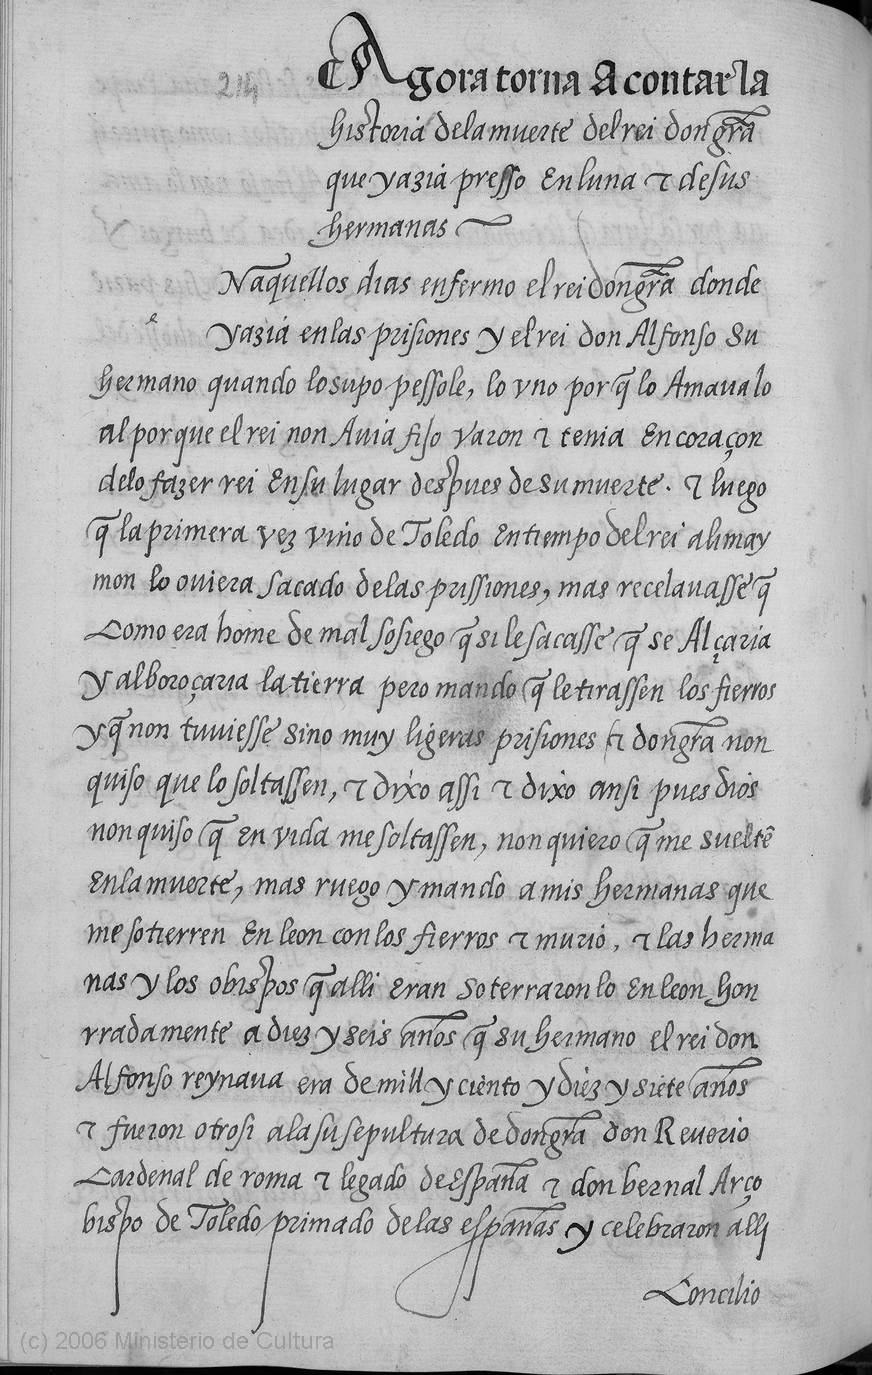 214
Agora torna A contar la
historia dela muerte del rei don gr̃a
que yazia presso En luna τ de sus
hermanas
Naquellos dias enfermo el rei don gr̃a donde
e
yazia en las prisiones y el rei don Alfonso su
hermano quando lo supo pessole, lo vno por q̃ lo Amaua lo
al por que el rei non Auia fijo varon τ tenia En coraçon
de lo fazer rei En su lugar despues de su muerte. τ luego
q̃ la primera vez vino de Toledo En tiempo del rei alimay
mon lo ouiera sacado de las prissiones, mas recelauasse q̃
Como era home de mal sosiego q̃ si le sacasse q̃ se Alçaria
y alboroçaria la tierra pero mando q̃ le tirassen los fierros
y q̃ non tuviesse sino muy ligeras prisiones τ don gr̃a non
quiso que lo soltassen, τ dixo assi τ dixo ansi pues dios
non quiso q̃ En vida me soltassen, non quiero q̃ me sueltẽ
En la muerte, mas ruego y mando a mis hermanas que
me sotierren En leon con los fierros τ murio, τ las herma
nas y los obispos q̃ alli eran soterraron lo En leon hon
rradamente a diez y seis años q̃ su hermano el rei don
Alfonso reynaua era de mill y ciento y diez y siete años
τ fueron otrosi a la su sepultura de don gr̃a don Reuerio
Cardenal de roma τ legado de España τ don bernal Arço
bispo de Toledo primado de las españas y celebraron alli
Concilio
(c) 2006 Ministerio de Cultura